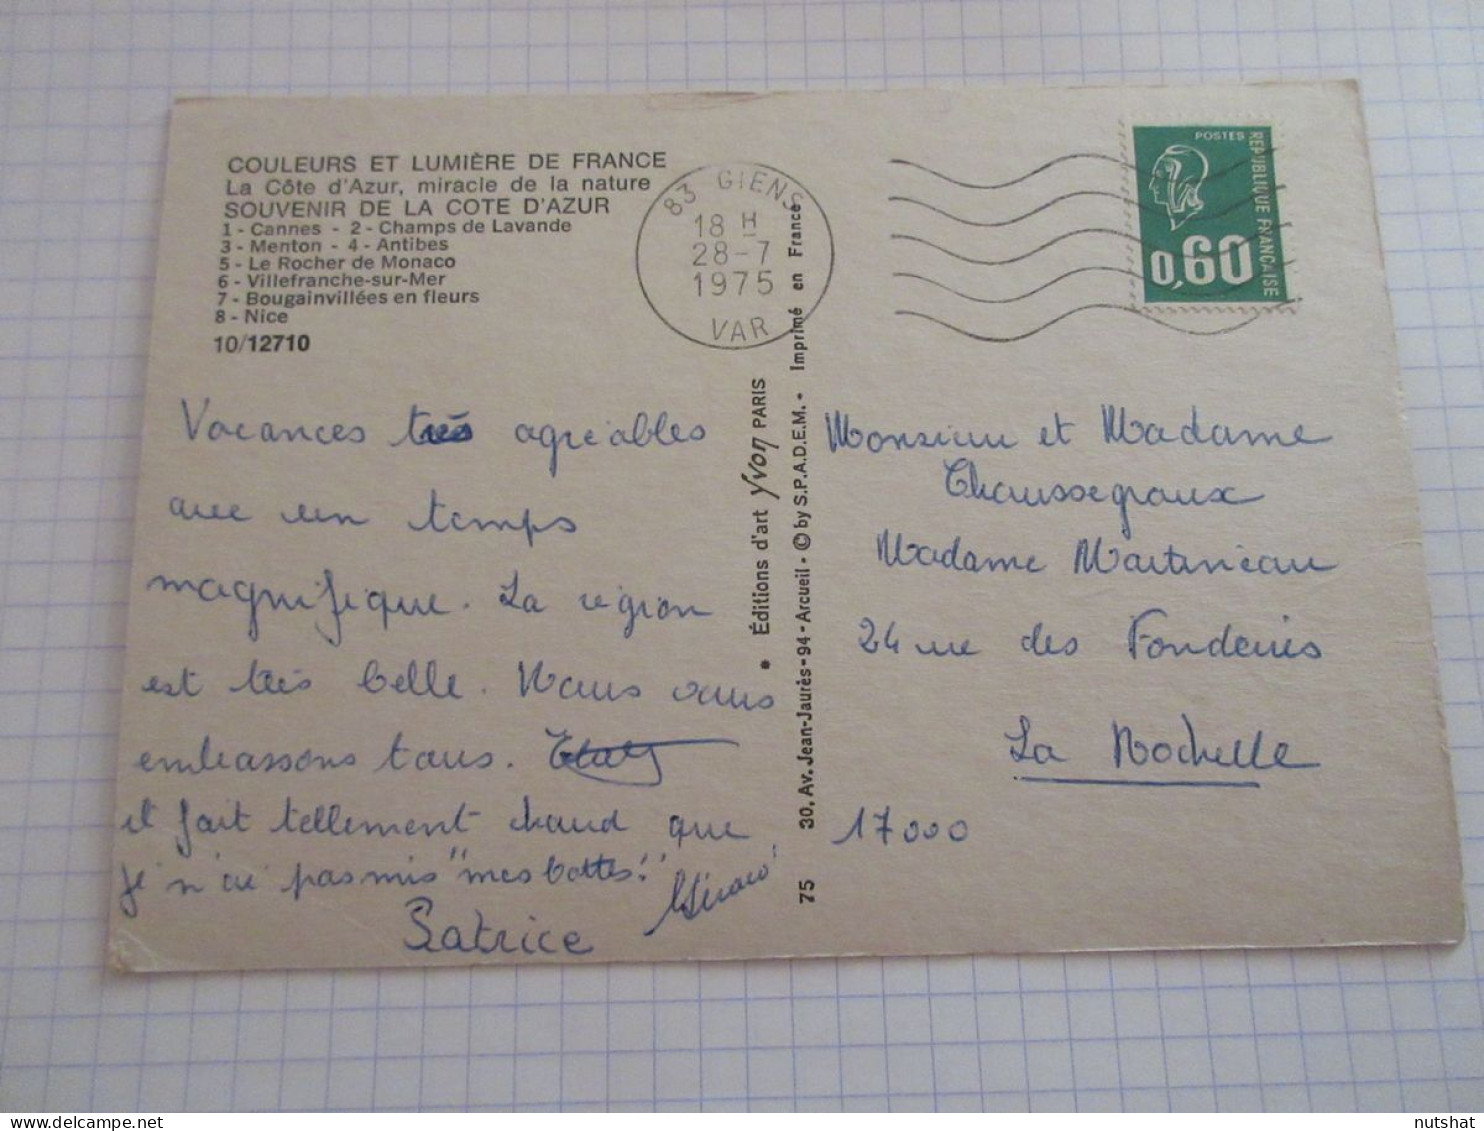 COULEURS ET LUMIÈRE DE FRANCE
La Côte d'Azur, miracle de la nature
SOUVENIR DE LA COTE D'AZUR
1 - Cannes - 2 - Champs de Lavande
3 - Menton - 4 - Antibes
5 - Le Rocher de Monaco
6 - Villefranche-sur-Mer
7 - Bougainvillées en fleurs
8 - Nice
10/12710
83 GIENS
18 H
28-7
1975
VAR
POSTES
REPUBLIQUE FRANÇAISE
0,60
Vacances très agréables
avec un temps
magnifique. La région
est très belle. Nous vous
embrassons tous.
il fait tellement chaud que
je n'ai pas mis "mes bottes!"
Patrice
• Éditions d'art Yvon PARIS
75 30, Av. Jean-Jaurès - 94 - Arcueil - © by S.P.A.D.E.M. - Imprimé en France
Monsieur et Madame
Chaussegroux
Madame Martineau
24 rue des Fonderies
La Rochelle
17000
nutshat